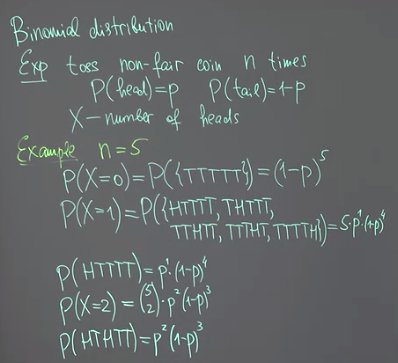 Binomial distribution
Exp toss non-fair coin n times
P(head)=p P(tail)=1-p
X - number of heads
Example n=5
P(X=0)=P({TTTTT})=(1-p)^5
P(X=1)=P({HTTTT, THTTT,
TTHTT, TTTHT, TTTTH})=5·p^1·(1-p)^4
P(HTTTT)=p^1·(1-p)^4
P(X=2)=(5 2)·p^2(1-p)^3
P(HTHTT)=p^2(1-p)^3